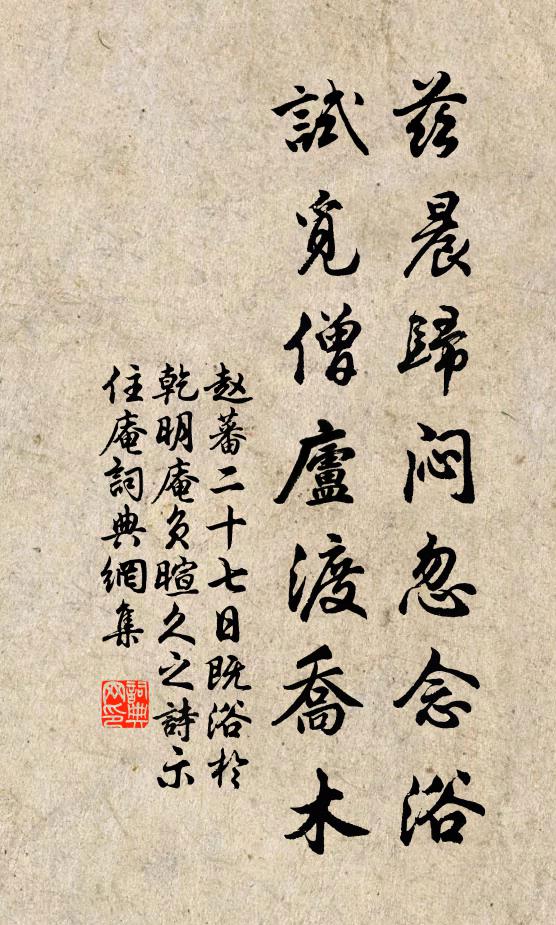 茲晨歸闷忽念浴
試覓僧廬渡喬木
赵蕃二十七日既浴於
乾明庵负暄久之詩示
住庵詞典網集
詞典网印